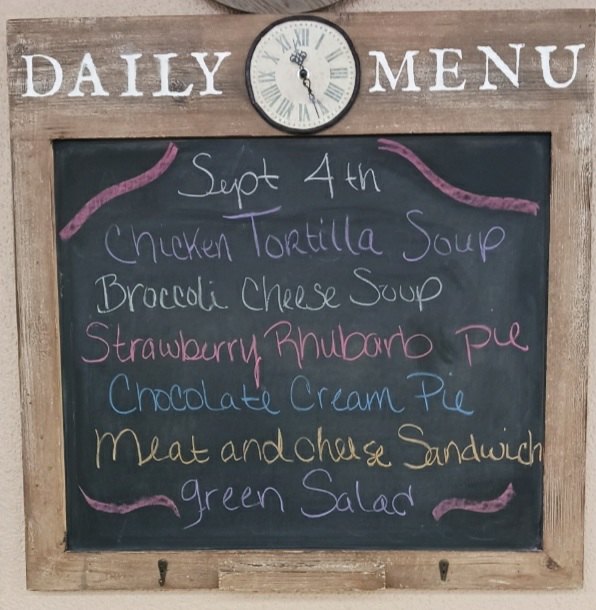 DAILY MENU
Sept 4th
Chicken Tortilla Soup
Broccoli Cheese Soup
Strawberry Rhubarb pie
Chocolate Cream Pie
Meat and cheese Sandwich
green Salad